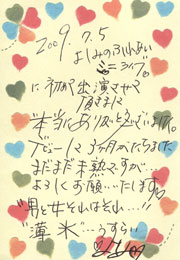 2009.7.5
よしみのふれあい
ミニライブ。
に初めて出演させて
頂きまして
本当にありがとうございました。
デビューして3ヶ月がたちました
まだまだ未熟ですが…
よろしくお願いいたします。
"男と女はそんなもん…!!"
"薄氷"…うすらい